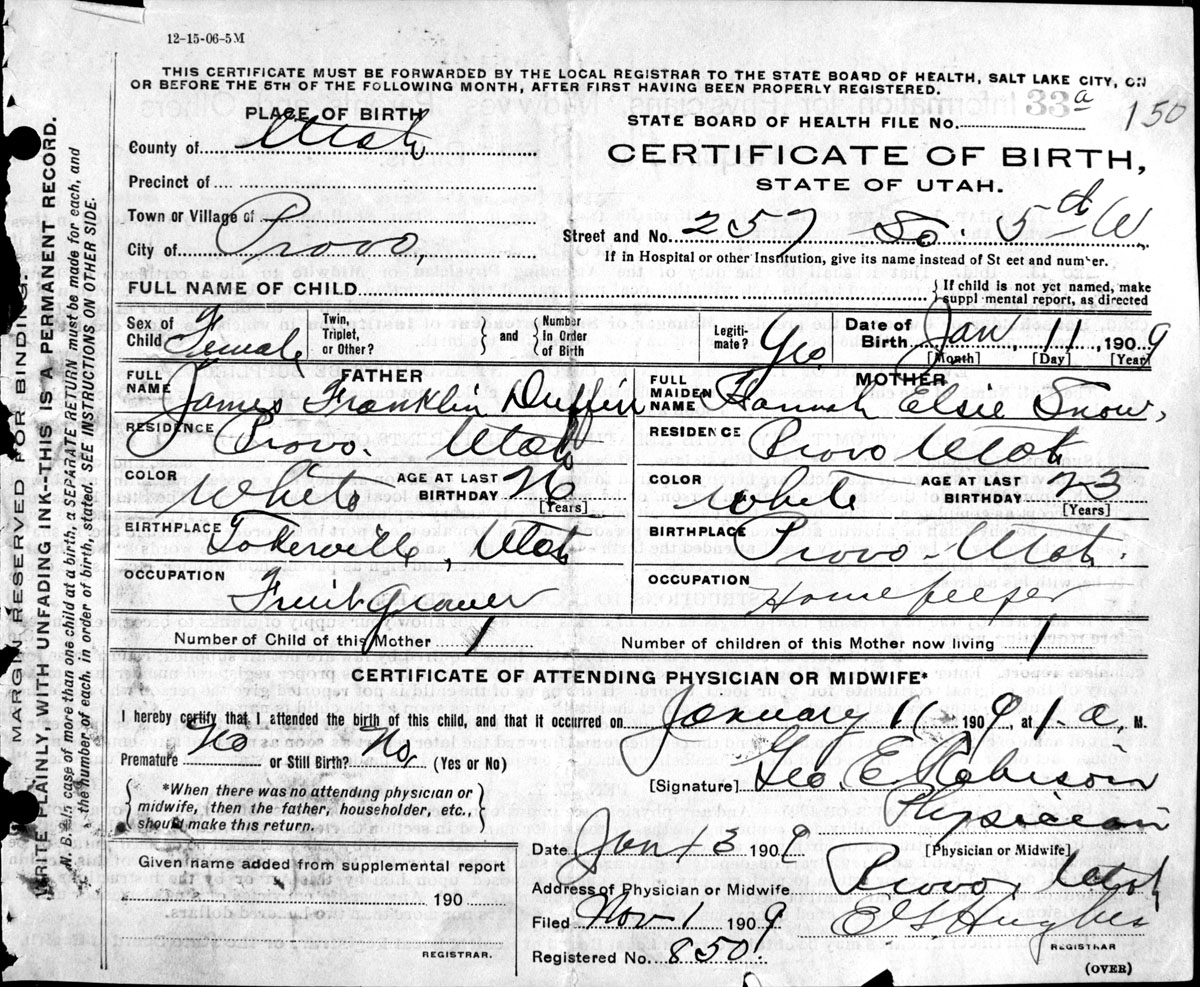 12-15-06-5M
THIS CERTIFICATE MUST BE FORWARDED BY THE LOCAL REGISTRAR TO THE STATE BOARD OF HEALTH, SALT LAKE CITY, ON
OR BEFORE THE 5TH OF THE FOLLOWING MONTH, AFTER FIRST HAVING BEEN PROPERLY REGISTERED.
PLACE OF BIRTH
County of Utah
Precinct of
Town or Village of
City of Provo,
STATE BOARD OF HEALTH FILE No. 33a 150
CERTIFICATE OF BIRTH,
STATE OF UTAH.
Street and No. 257 So. 5th W,
If in Hospital or other Institution, give its name instead of St eet and number.
FULL NAME OF CHILD
If child is not yet named, make
suppl mental report, as directed
Sex of Child Female
Twin, Triplet, or Other?
and
Number In Order of Birth
Legiti-mate? Yes
Date of Birth Jan 11, 1909
[Month] [Day] [Year]
FATHER
FULL NAME James Franklin Duffin
RESIDENCE Provo. Utah
COLOR White AGE AT LAST BIRTHDAY 26
[Years]
BIRTHPLACE Tokerville, Utah
OCCUPATION Fruit Grower
MOTHER
FULL MAIDEN NAME Hannah Elsie Snow,
RESIDENCE Provo Utah
COLOR White AGE AT LAST BIRTHDAY 23
[Years]
BIRTHPLACE Provo Utah.
OCCUPATION Homekeeper
Number of Child of this Mother 1
Number of children of this Mother now living 1
CERTIFICATE OF ATTENDING PHYSICIAN OR MIDWIFE*
I hereby certify that I attended the birth of this child, and that it occurred on January 11 1909, at 1. a, M.
Premature No or Still Birth? No (Yes or No)
*When there was no attending physician or
midwife, then the father, householder, etc.,
should make this return.
[Signature] Geo E Robison
Physician
[Physician or Midwife]
Given name added from supplemental report
190
REGISTRAR.
Date Jan 13 1909
Address of Physician or Midwife Provo, Utah
Filed Nov 1 1909 E S, Hughes
REGISTRAR
Registered No. 850.
(OVER)
MARGIN RESERVED FOR BINDING.
WRITE PLAINLY, WITH UNFADING INK--THIS IS A PERMANENT RECORD.
N. B.--In case of more than one child at a birth, a SEPARATE RETURN must be made for each, and
the number of each, in order of birth, stated. SEE INSTRUCTIONS ON OTHER SIDE.